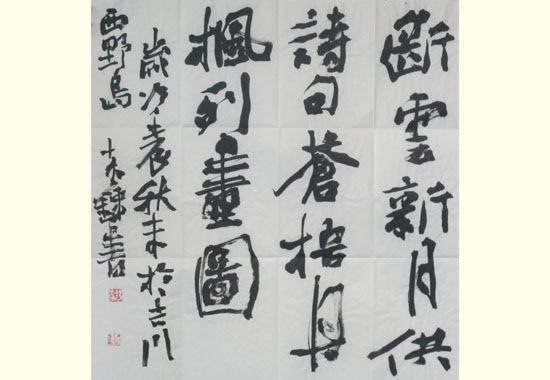 斷雲新月供
詩句蒼檜丹
楓列畫圖
歲次秋末於吉川
西野島書